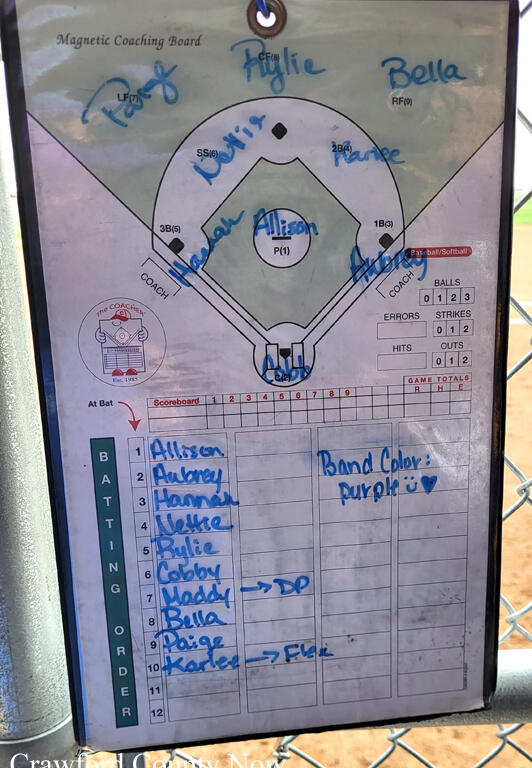 Magnetic Coaching Board
CF(8)
Rylie
LF(7)
Paige
RF(9)
Bella
SS(6)
Nettie
2B(4)
Karlee
3B(5)
Hannah
Allison
P(1)
1B(3)
Aubrey
COACH
COACH
Baseball/Softball
BALLS
0 1 2 3
ERRORS
STRIKES
0 1 2
HITS
OUTS
0 1 2
The COACHER
Est. 1985
Cobb
At Bat
Scoreboard 1 2 3 4 5 6 7 8 9
GAME TOTALS
R H E
BATTING ORDER
1 Allison
2 Aubrey
3 Hannah
4 Nettie
5 Rylie
6 Cobby
7 Maddy → DP
8 Bella
9 Paige
10 Karlee → Flex
11
12
Band Color:
purple
Crawford County Now